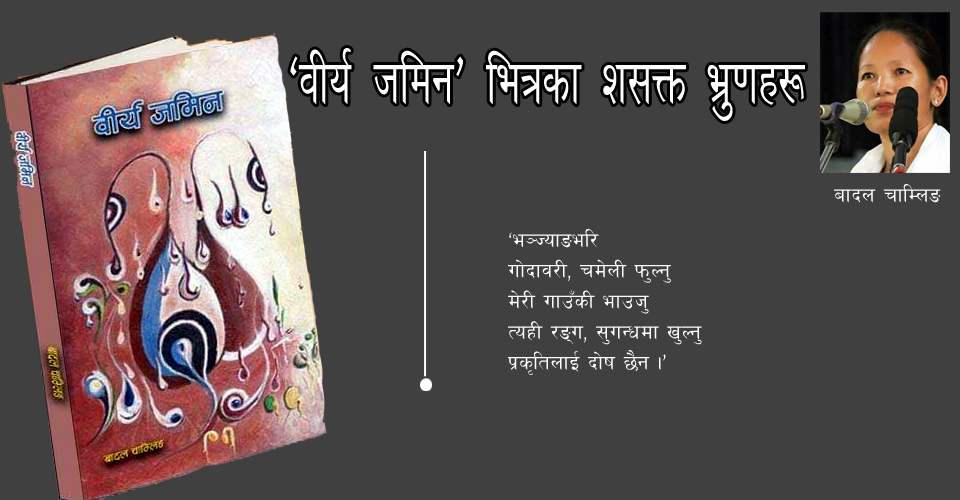 ‘वीर्य जमिन’ भित्रका शसक्त भ्रुणहरू
वीर्य जमिन
वीर्य जमिन
बादल चाम्लिङ
बादल चाम्लिङ
बादल चाम्लिङ
‘भञ्ज्याङभरि
गोदावरी, चमेली फुल्नु
मेरी गाउँकी भाउजु
त्यही रङ्ग, सुगन्धमा खुल्नु
प्रकृतिलाई दोष छैन ।’